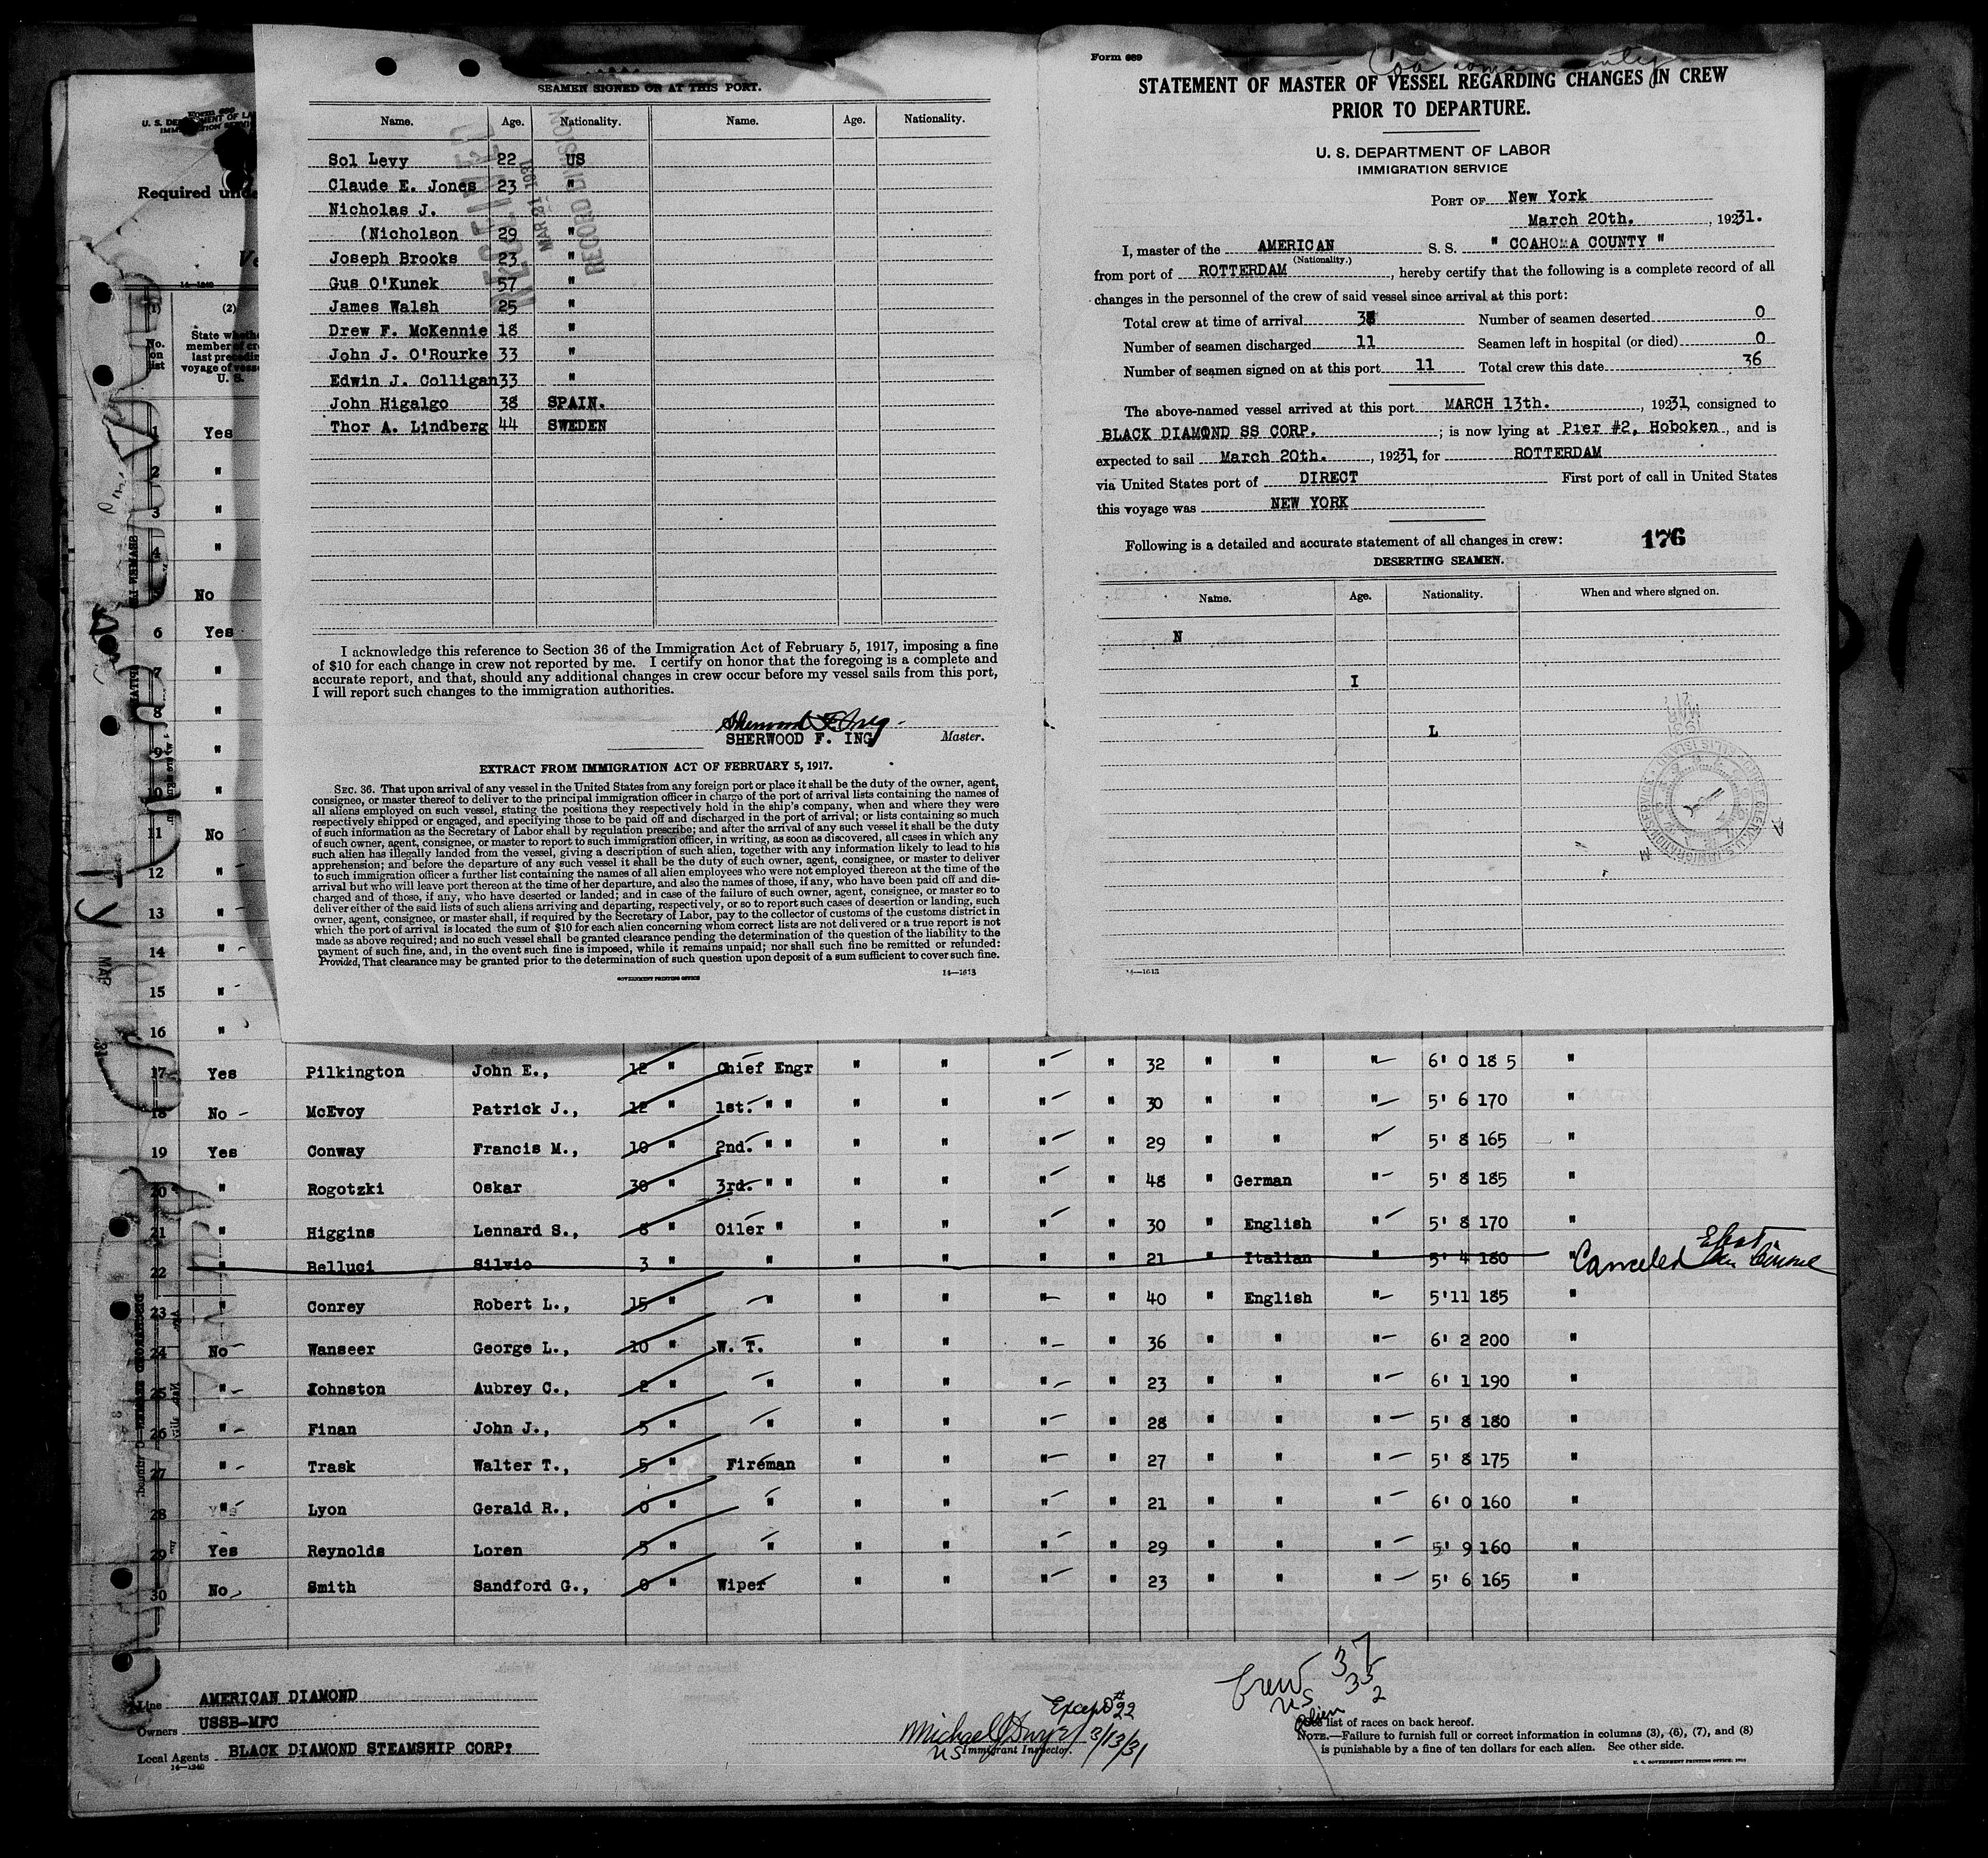 SEAMEN SIGNED ON AT THIS PORT.
Name. Age. Nationality. Name. Age. Nationality.
Sol Levy 22 US
Claude E. Jones 23 "
Nicholas J.
(Nicholson 29 "
Joseph Brooks 23 "
Gus O'Kunek 57 "
James Walsh 25 "
Drew F. McKennie 18 "
John J. O'Rourke 33 "
Edwin J. Colligan 33 "
John Higalgo 38 SPAIN.
Thor A. Lindberg 44 SWEDEN
RECEIVED
MAR 21 1931
RECORD DIVISION
I acknowledge this reference to Section 36 of the Immigration Act of February 5, 1917, imposing a fine
of $10 for each change in crew not reported by me. I certify on honor that the foregoing is a complete and
accurate report, and that, should any additional changes in crew occur before my vessel sails from this port,
I will report such changes to the immigration authorities.
Sherwood F. Ing
SHERWOOD F. ING Master.
EXTRACT FROM IMMIGRATION ACT OF FEBRUARY 5, 1917.
SEC. 36. That upon arrival of any vessel in the United States from any foreign port or place it shall be the duty of the owner, agent,
consignee, or master thereof to deliver to the principal immigration officer in charge of the port of arrival lists containing the names of
all aliens employed on such vessel, stating the positions they respectively hold in the ship's company, when and where they were
respectively shipped or engaged, and specifying those to be paid off and discharged in the port of arrival; or lists containing so much
of such information as the Secretary of Labor shall by regulation prescribe; and after the arrival of any such vessel it shall be the duty
of such owner, agent, consignee, or master to report to such immigration officer, in writing, as soon as discovered, all cases in which any
such alien has illegally landed from the vessel, giving a description of such alien, together with any information likely to lead to his
apprehension; and before the departure of any such vessel it shall be the duty of such owner, agent, consignee, or master to deliver
to such immigration officer a further list containing the names of all alien employees who were not employed thereon at the time of the
arrival but who will leave port thereon at the time of her departure, and also the names of those, if any, who have been paid off and dis-
charged and of those, if any, who have deserted or landed; and in case of the failure of such owner, agent, consignee, or master so to
deliver either of the said lists of such aliens arriving and departing, respectively, or so to report such cases of desertion or landing, such
owner, agent, consignee, or master shall, if required by the Secretary of Labor, pay to the collector of customs of the customs district in
which the port of arrival is located the sum of $10 for each alien concerning whom correct lists are not delivered or a true report is not
made as above required; and no such vessel shall be granted clearance pending the determination of the question of the liability to the
payment of such fine, and, in the event such fine is imposed, while it remains unpaid; nor shall such fine be remitted or refunded:
Provided, That clearance may be granted prior to the determination of such question upon deposit of a sum sufficient to cover such fine.
GOVERNMENT PRINTING OFFICE 14—1613
Form 689
STATEMENT OF MASTER OF VESSEL REGARDING CHANGES IN CREW
PRIOR TO DEPARTURE.
U. S. DEPARTMENT OF LABOR
IMMIGRATION SERVICE
PORT OF New York
March 20th. , 19231.
I, master of the AMERICAN S. S. " COAHOMA COUNTY "
(Nationality.)
from port of ROTTERDAM , hereby certify that the following is a complete record of all
changes in the personnel of the crew of said vessel since arrival at this port:
Total crew at time of arrival Number of seamen deserted 0
Number of seamen discharged 11 Seamen left in hospital (or died) 0
Number of seamen signed on at this port 11 Total crew this date 36
The above-named vessel arrived at this port MARCH 13th. , 19231, consigned to
BLACK DIAMOND SS CORP. ; is now lying at Pier #2, Hoboken , and is
expected to sail March 20th. , 19231, for ROTTERDAM
via United States port of DIRECT First port of call in United States
this voyage was NEW YORK
Following is a detailed and accurate statement of all changes in crew: 176
DESERTING SEAMEN.
Name. Age. Nationality. When and where signed on.
N
I
L
14—1613
Required unde
14—1240
(1) (2)
No. on list
State whethe
member of cre
last precedin
voyage of vesse
U. S.
1 Yes
2 "
3 "
4 "
5 No
6 Yes
7 "
8 "
9 "
10 "
11 No
12 "
13 "
14 "
15 "
16 "
17 Yes Pilkington John E., 12 " Chief Engr " " " " 32 " " " 6' 0 185 "
18 No McEvoy Patrick J., 12 " 1st. " " " " " " 30 " " " 5' 6 170 "
19 Yes Conway Francis M., 10 " 2nd. " " " " " " 29 " " " 5' 8 165 "
20 " Rogotzki Oskar 30 " 3rd. " " " " " " 48 " German " 5' 8 185 "
21 " Higgins Lennard S., 8 " Oiler " " " " " 30 " English " 5' 8 170 "
22 " Belluci Silvio 3 " " " " " " 21 " Italian " 5' 4 180 " Canceled
23 " Conrey Robert L., 15 " " " " " " 40 " English " 5'11 185 "
24 No Wanseer George L., 10 " W. T. " " " " 36 " " " 6' 2 200 "
25 " Johnston Aubrey C., 2 " " " " " " 23 " " " 6' 1 190 "
26 " Finan John J., 5 " " " " " " 28 " " " 5' 8 180 "
27 " Trask Walter T., 5 " Fireman " " " " 27 " " " 5' 8 175 "
28 " Lyon Gerald R., 0 " " " " " " 21 " " " 6' 0 160 "
29 Yes Reynolds Loren 5 " " " " " " 29 " " " 5' 9 160 "
30 No Smith Sandford G., 0 " Wiper " " " " 23 " " " 5' 6 165 "
Line AMERICAN DIAMOND
Owners USSB-MFC
Local Agents BLACK DIAMOND STEAMSHIP CORP.
14—1240
Except #22
Michael 3/13/31
US Immigrant Inspector.
Crew 37
US 35
Alien 2
See list of races on back hereof.
NOTE.—Failure to furnish full or correct information in columns (3), (6), (7), and (8)
is punishable by a fine of ten dollars for each alien. See other side.
U. S. GOVERNMENT PRINTING OFFICE